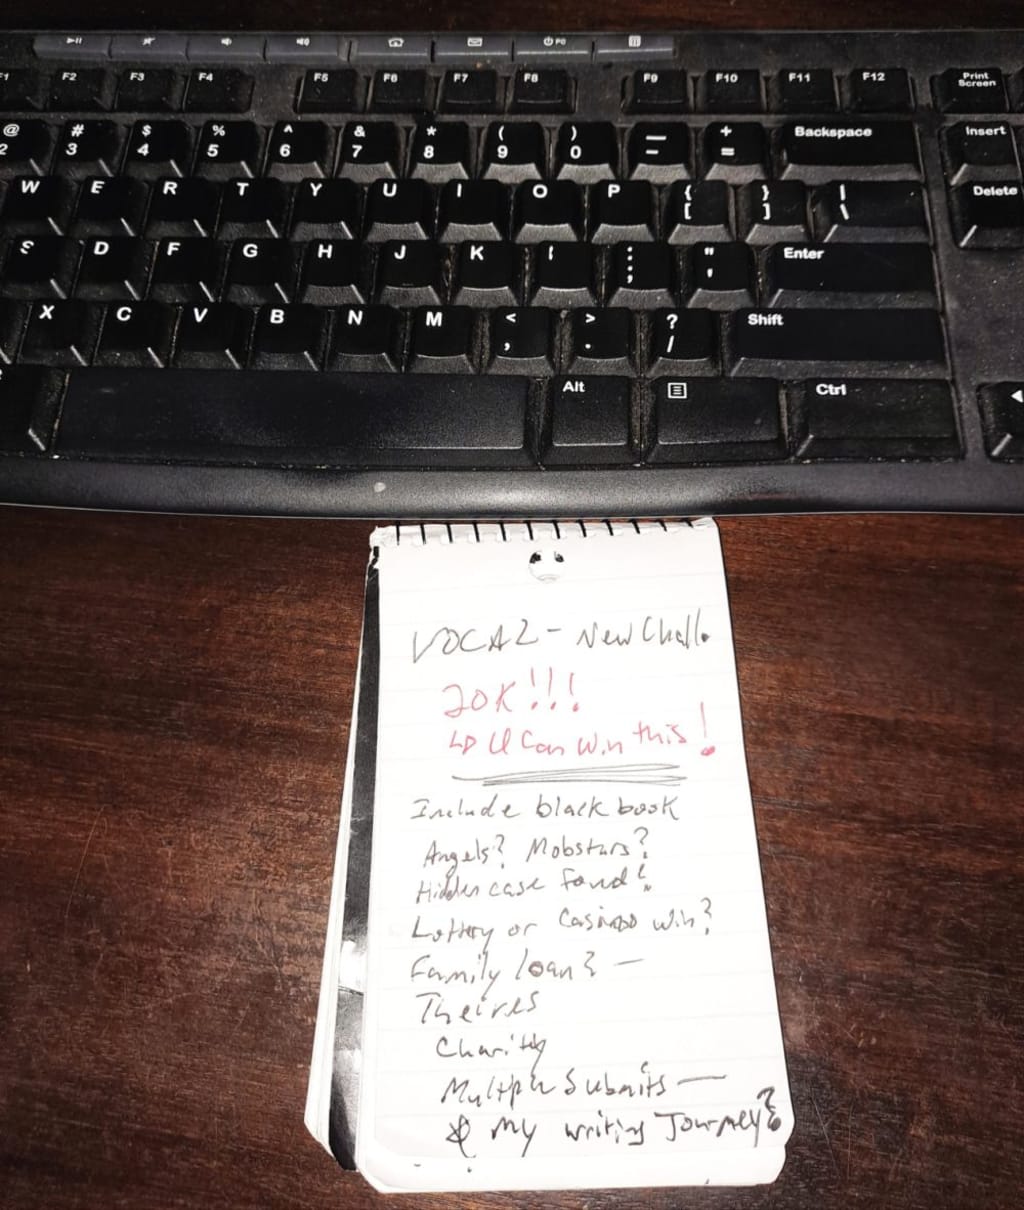 F1 F2 F3 F4 F5 F6 F7 F8 F9 F10 F11 F12 Print Screen
@ 2 # 3 $ 4 % 5 ^ 6 & 7 * 8 ( 9 ) 0 — - + = Backspace Insert
W E R T Y U I O P { [ } ] | \ Delete
S D F G H J K : ; " ' Enter
X C V B N M < , > . ? / Shift
Alt Ctrl
VOCAL - New Chall.
20K!!!
↳ U Can Win this!
Include black book
Angels? Mobstars?
Hidden case found?
Lottery or Casino win?
Family loan? —
Theives
Charity
Multple Submits —
My writing Journey?